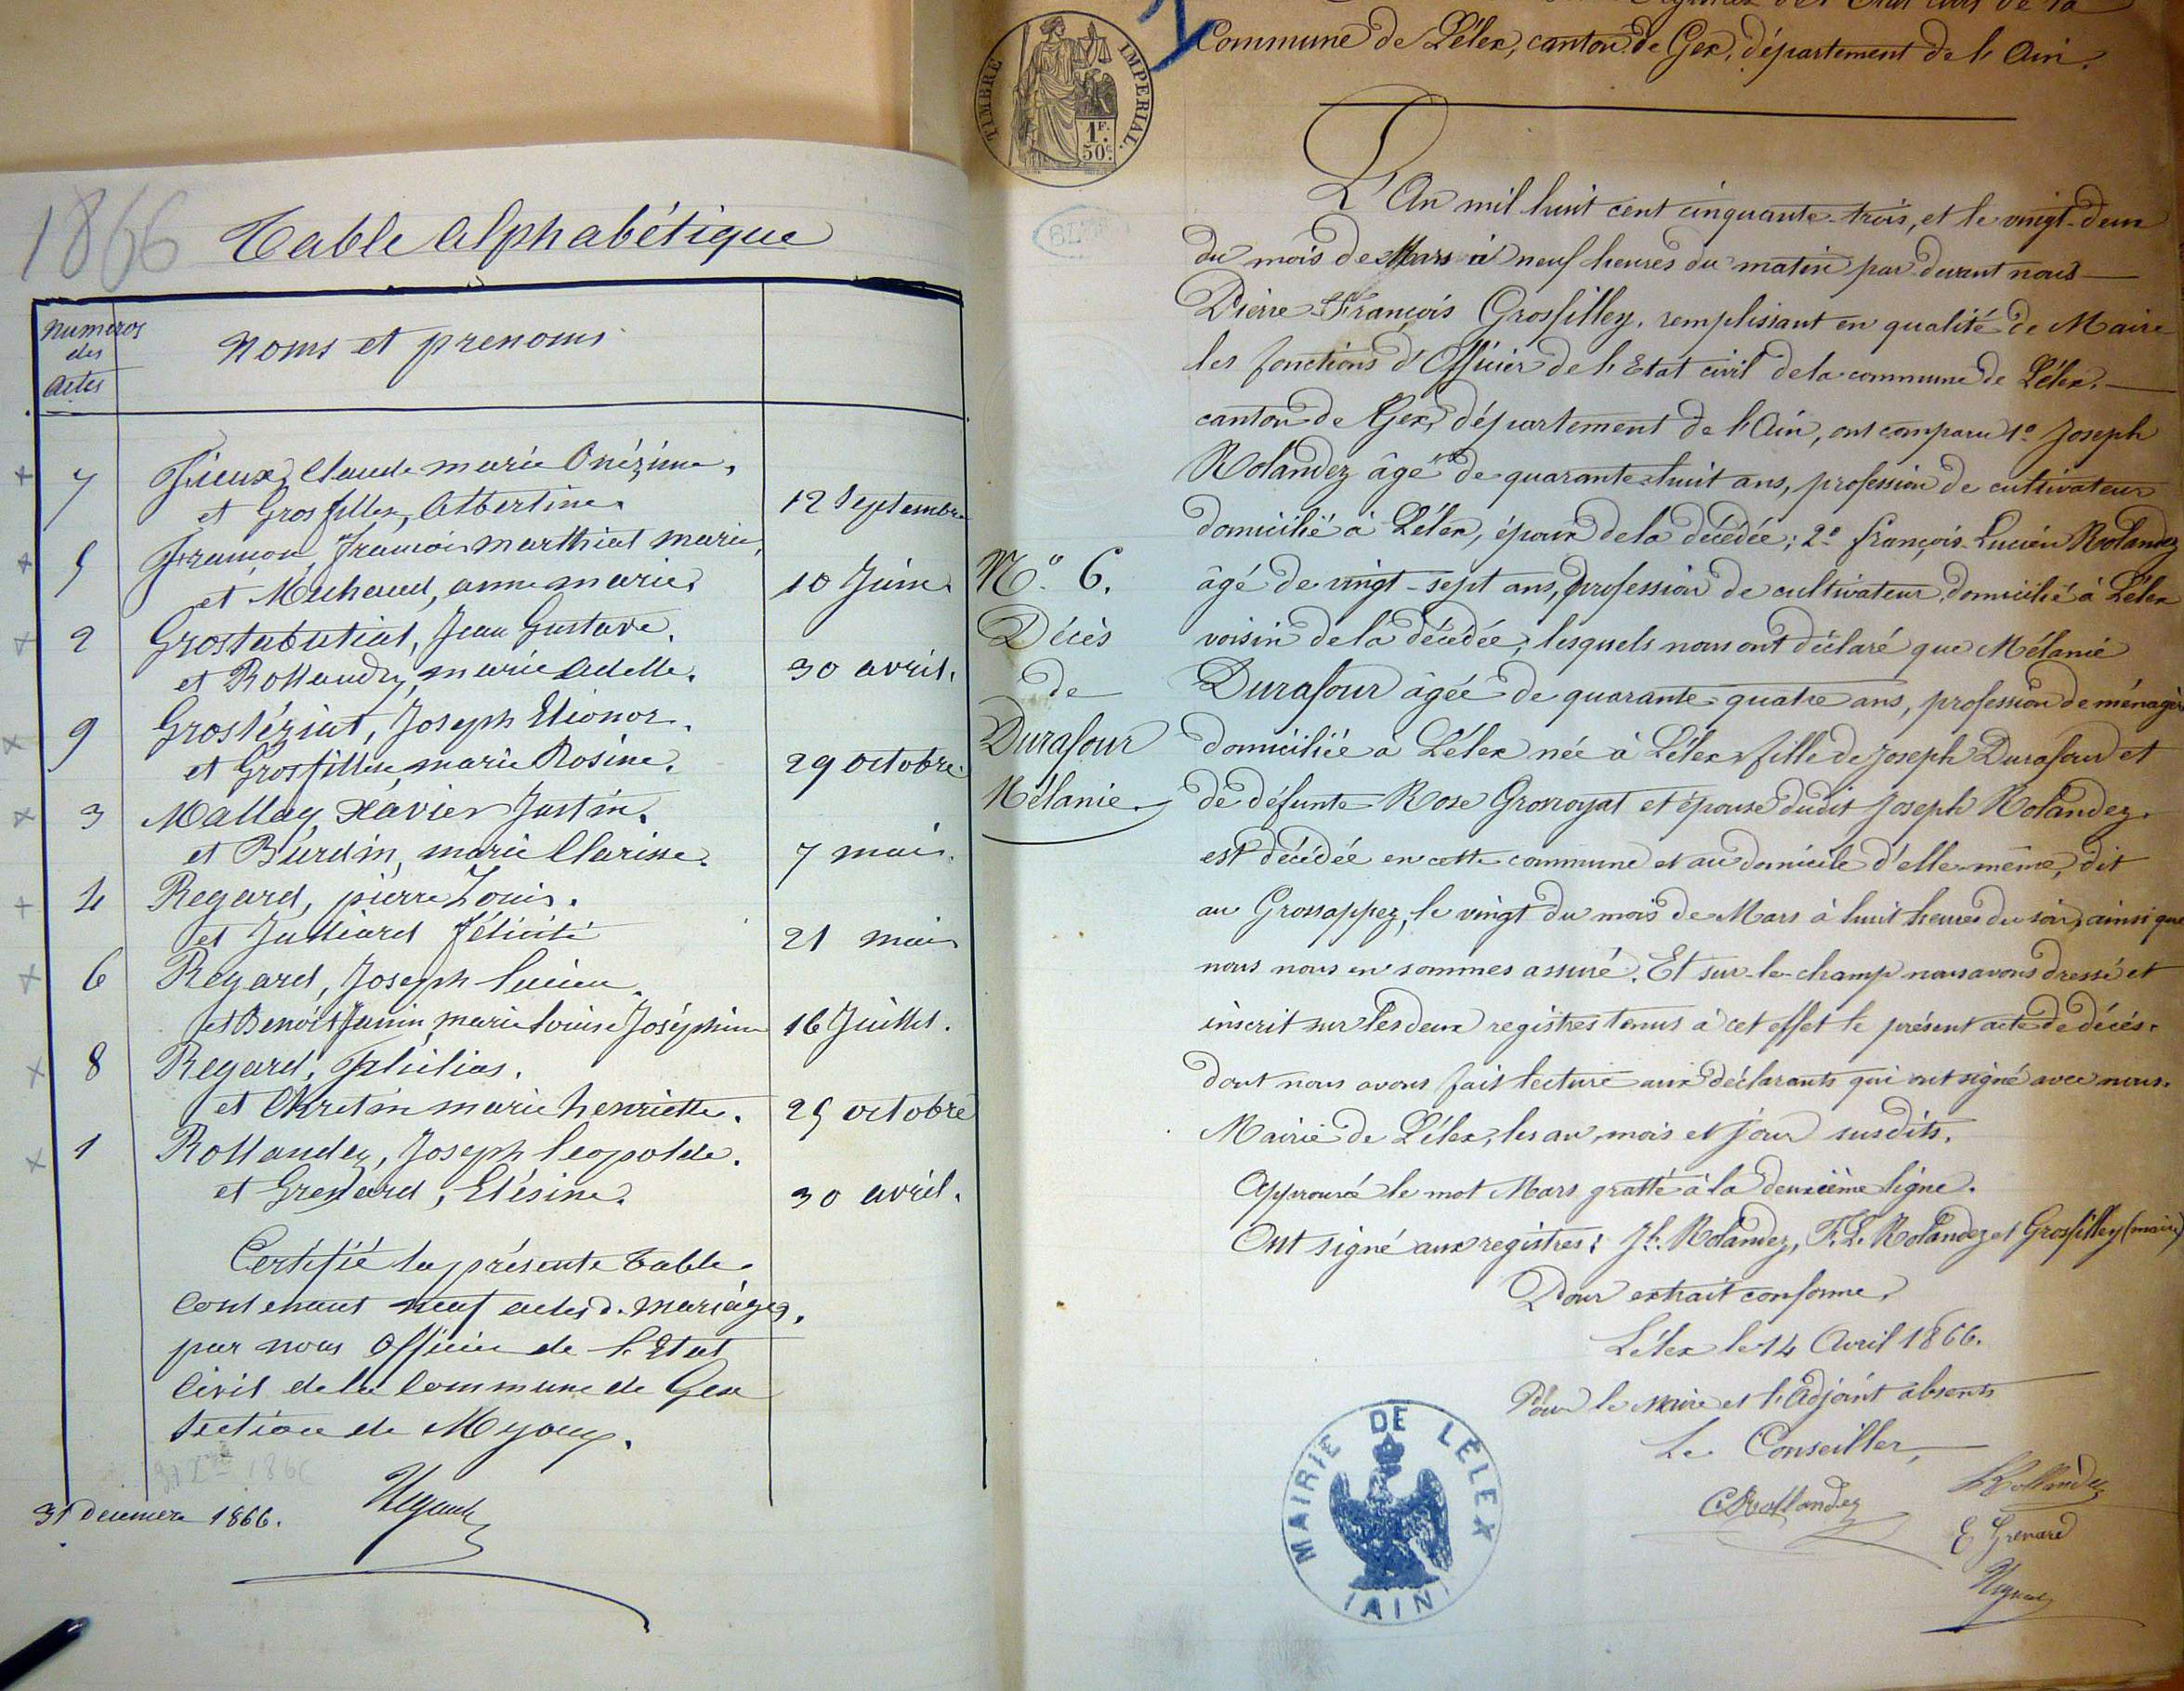 1866
Table Alphabétique
Numeros
des
actes
Noms et prenoms
7 Fieux, Claude marie Onézime,
et Grosfilley, Albertine. 12 Septembre
5 François marthiat marie,
et Michaud, anne marie. 10 Juin
2 Grostabutiat, Jean Gustave.
et Rollandez, marie Adelle. 30 avril.
9 Grosléziat, Joseph Elionor.
et Grosfilley, marie Rosine. 29 octobre
3 Mallay, Xavier Justin.
et Burdin, marie Clarisse. 7 mai.
4 Regard, pierre Louis.
et Julliard Félicité 21 mai
6 Regard, Joseph Lucien.
et Benoit Junin, marie Louise Joséphine 16 Juillet.
8 Regard, Philias.
et Chretin marie henriette. 25 octobre
1 Rollandez, Joseph Leopolde.
et Grenard, Elésine. 30 avril.
Certifié la présente table
contenant neuf actes de mariages,
par nous officier de l'Etat
Civil de la Commune de Gex
Section de
31 Decembre 1866.
TIMBRE IMPERIAL.
1F.
50c.
Commune de Lélex, canton de Gex, département de l'Ain.
L'An mil huit cent cinquante-trois, et le vingt-deux
du mois de Mars à neuf heures du matin par devant nous
Pierre-François Grosfilley, remplissant en qualité de Maire
les fonctions d'Officier de l'Etat civil de la commune de Lélex,
canton de Gex, département de l'Ain, ont comparu 1o. Joseph
Rolandez âgé de quarante-huit ans, profession de cultivateur
domicilié à Lélex, époux de la décédée; 2o. françois-Lucien Rolandez
âgé de vingt-sept ans, profession de cultivateur, domicilié à Lélex
voisin de la décédée; lesquels nous ont déclaré que Mélanie
Durafour âgée de quarante-quatre ans, profession de ménagère
domiciliée à Lélex née à Lélex fille de Joseph Durafour et
de défunte Rose Grosroyat et épouse dudit Joseph Rolandez.
est décédée en cette commune et au domicile d'elle-même, dit
au Grossappez, le vingt du mois de Mars à huit heures du soir, ainsi que
nous nous en sommes assuré. Et sur-le-champ nous avons dressé et
inscrit sur les deux registres tenus à cet effet le présent acte de décès.
dont nous avons fait lecture aux déclarants qui ont signé avec nous.
Mairie de Lélex, les an, mois et jour susdits.
Approuvé le mot Mars gratté à la deuxième ligne.
Ont signé aux registres: Jh. Rolandez, F. L. Rolandez et Grosfilley (maire)
Pour extrait conforme,
Lélex le 14 Avril 1866.
Pour le Maire et l'Adjoint absents
Le Conseiller,
Rollandez
E Grenard
No. 6.
Décès
de
Durafour
Mélanie.
MAIRIE DE LÉLEX
(AIN)